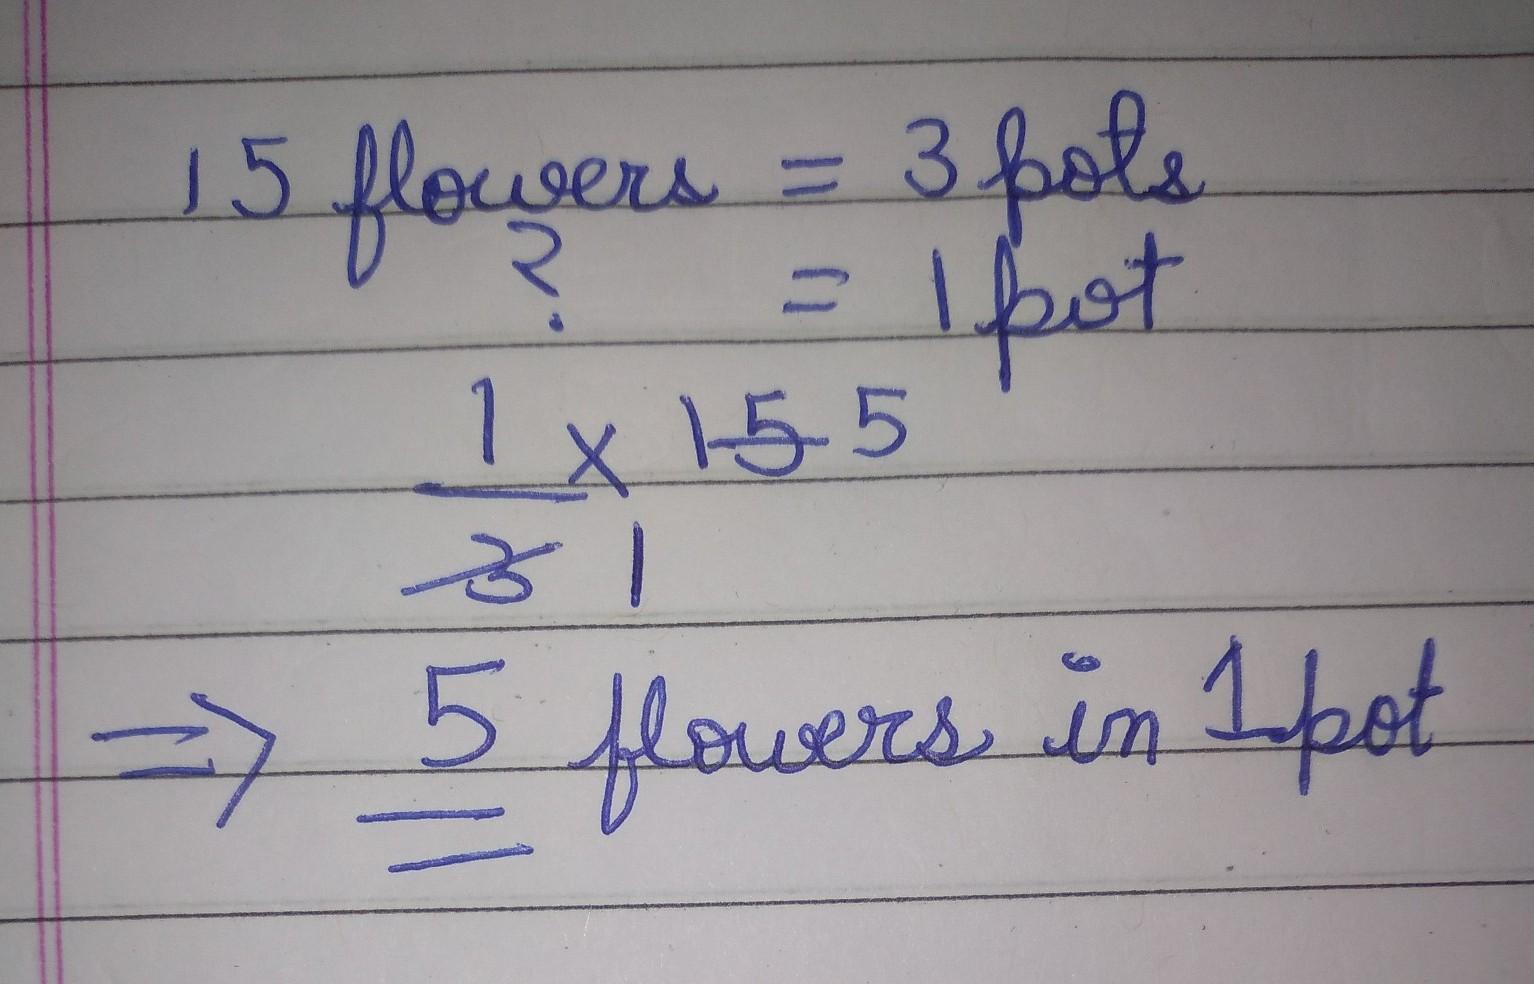 15 flowers = 3 pots
? = 1 pot
1 x 15 5
3 1
⇒ 5 flowers in 1 pot